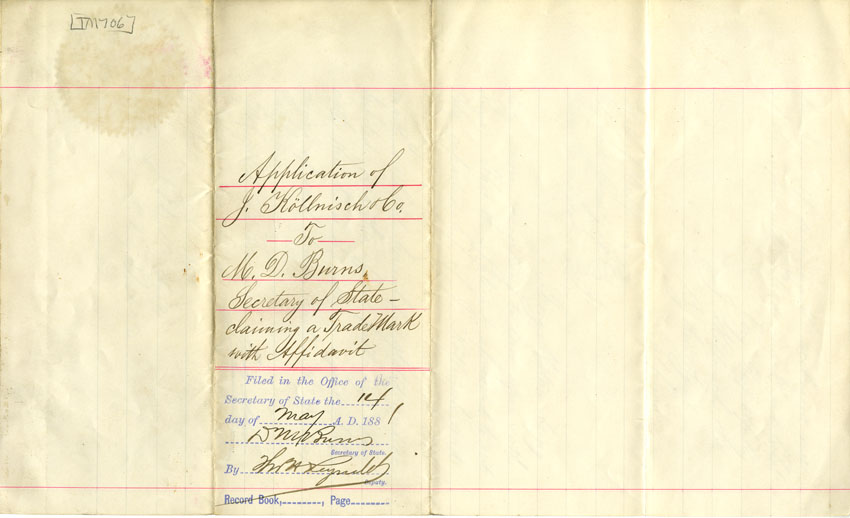 [TM706]
Application of
J. Köllnisch & Co.
To
M. D. Burns,
Secretary of State –
claiming a Trade Mark
with Affidavit
Filed in the Office of the
Secretary of State the 14
day of May A. D. 1881
D M Burns
Secretary of State.
By Reynolds
Deputy.
Record Book, Page